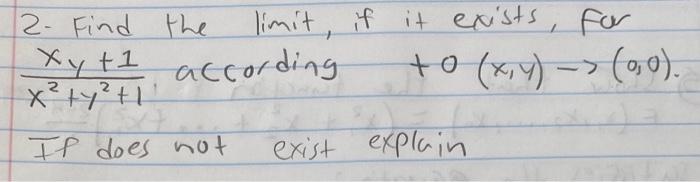 2- Find the limit, if it exists, for
xy+1 / x²+y²+1 according to (x,y) -> (0,0).
If does not exist explain